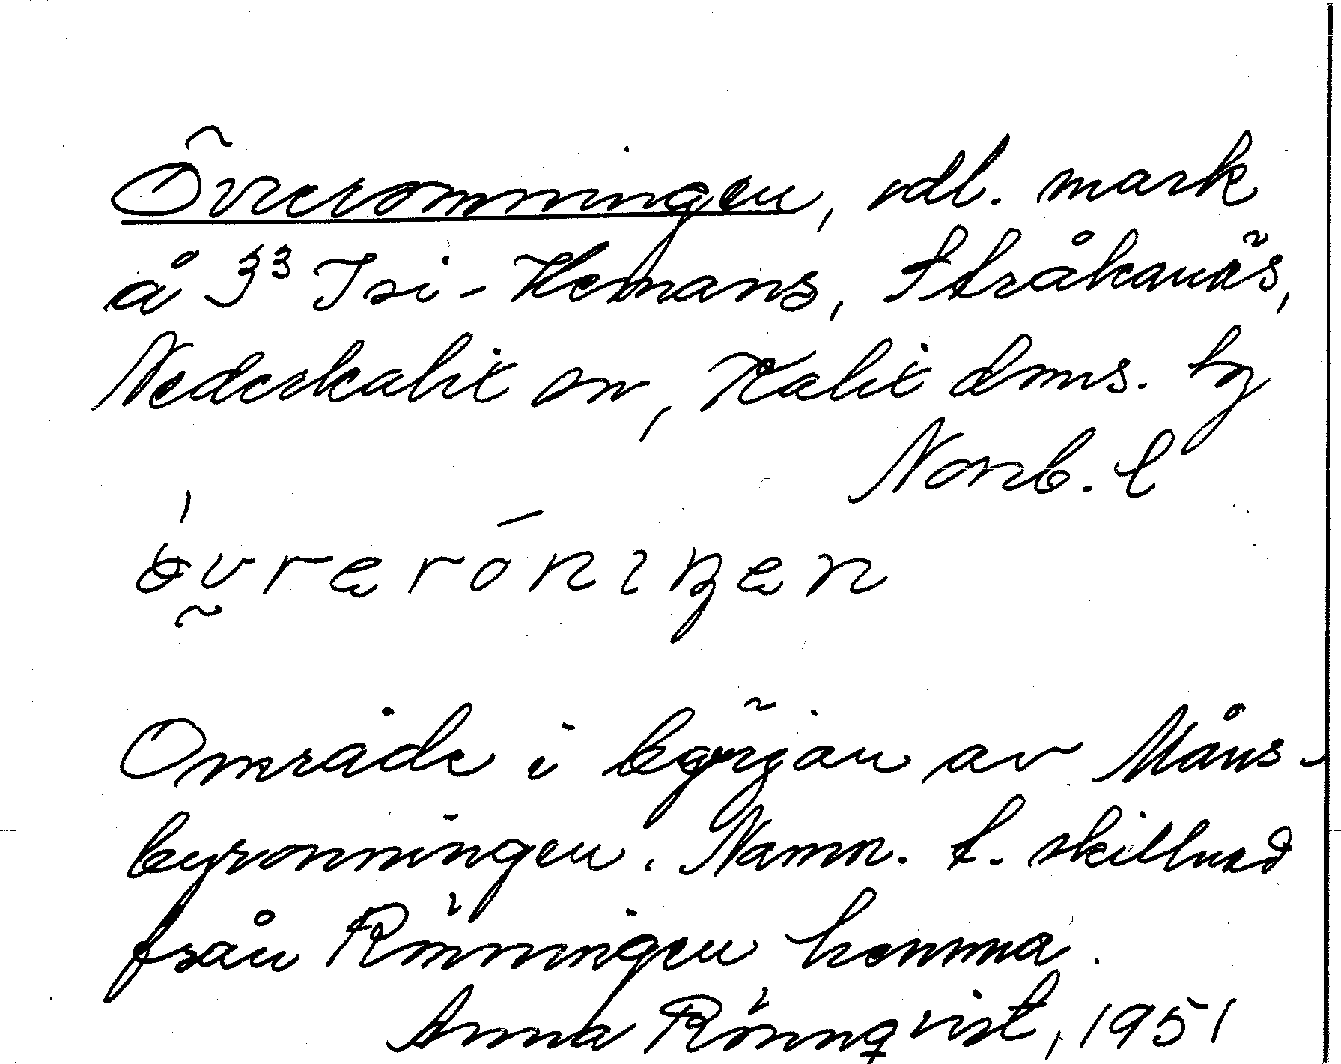 Övreronningen, odl. mark
å 3³ Isi-Hemans, Stråkanäs,
Nederkalix sn, Kalix dmns. tg
Norrb. l
övrerónıŋen
Område i början av Måns-
byronningen. Namn. t. skillnad
från Rönningen hemma.
Anna Rönnqvist, 1951